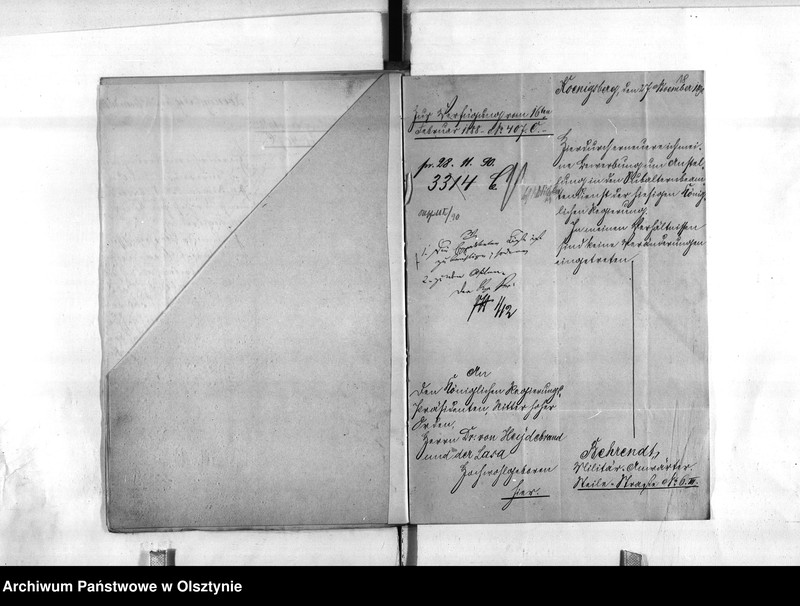 Koenigsberg, den 27 November 1890
Zur Verfügung vom 16ten
Februar 1888 - No 407. C. -
pr. 28. 11. 90.
3314 C.
Hierdurch erneuere ich mei-
ne Bewerbung um Anstel-
lung in den Subalternbeam-
tendienst der hiesigen König-
lichen Regierung.
In meinen Verhältnissen
sind keine Veränderungen
eingetreten
1/12
An
den Königlichen Regierungs-
Präsidenten, Ritter hoher
Orden,
Herrn Dr. von Heydebrand
und der Lasa
Hochwohlgeboren
hier.
Behrendt,
Militär-Anwärter.
Steile-Straße No 6. III.
Archiwum Państwowe w Olsztynie